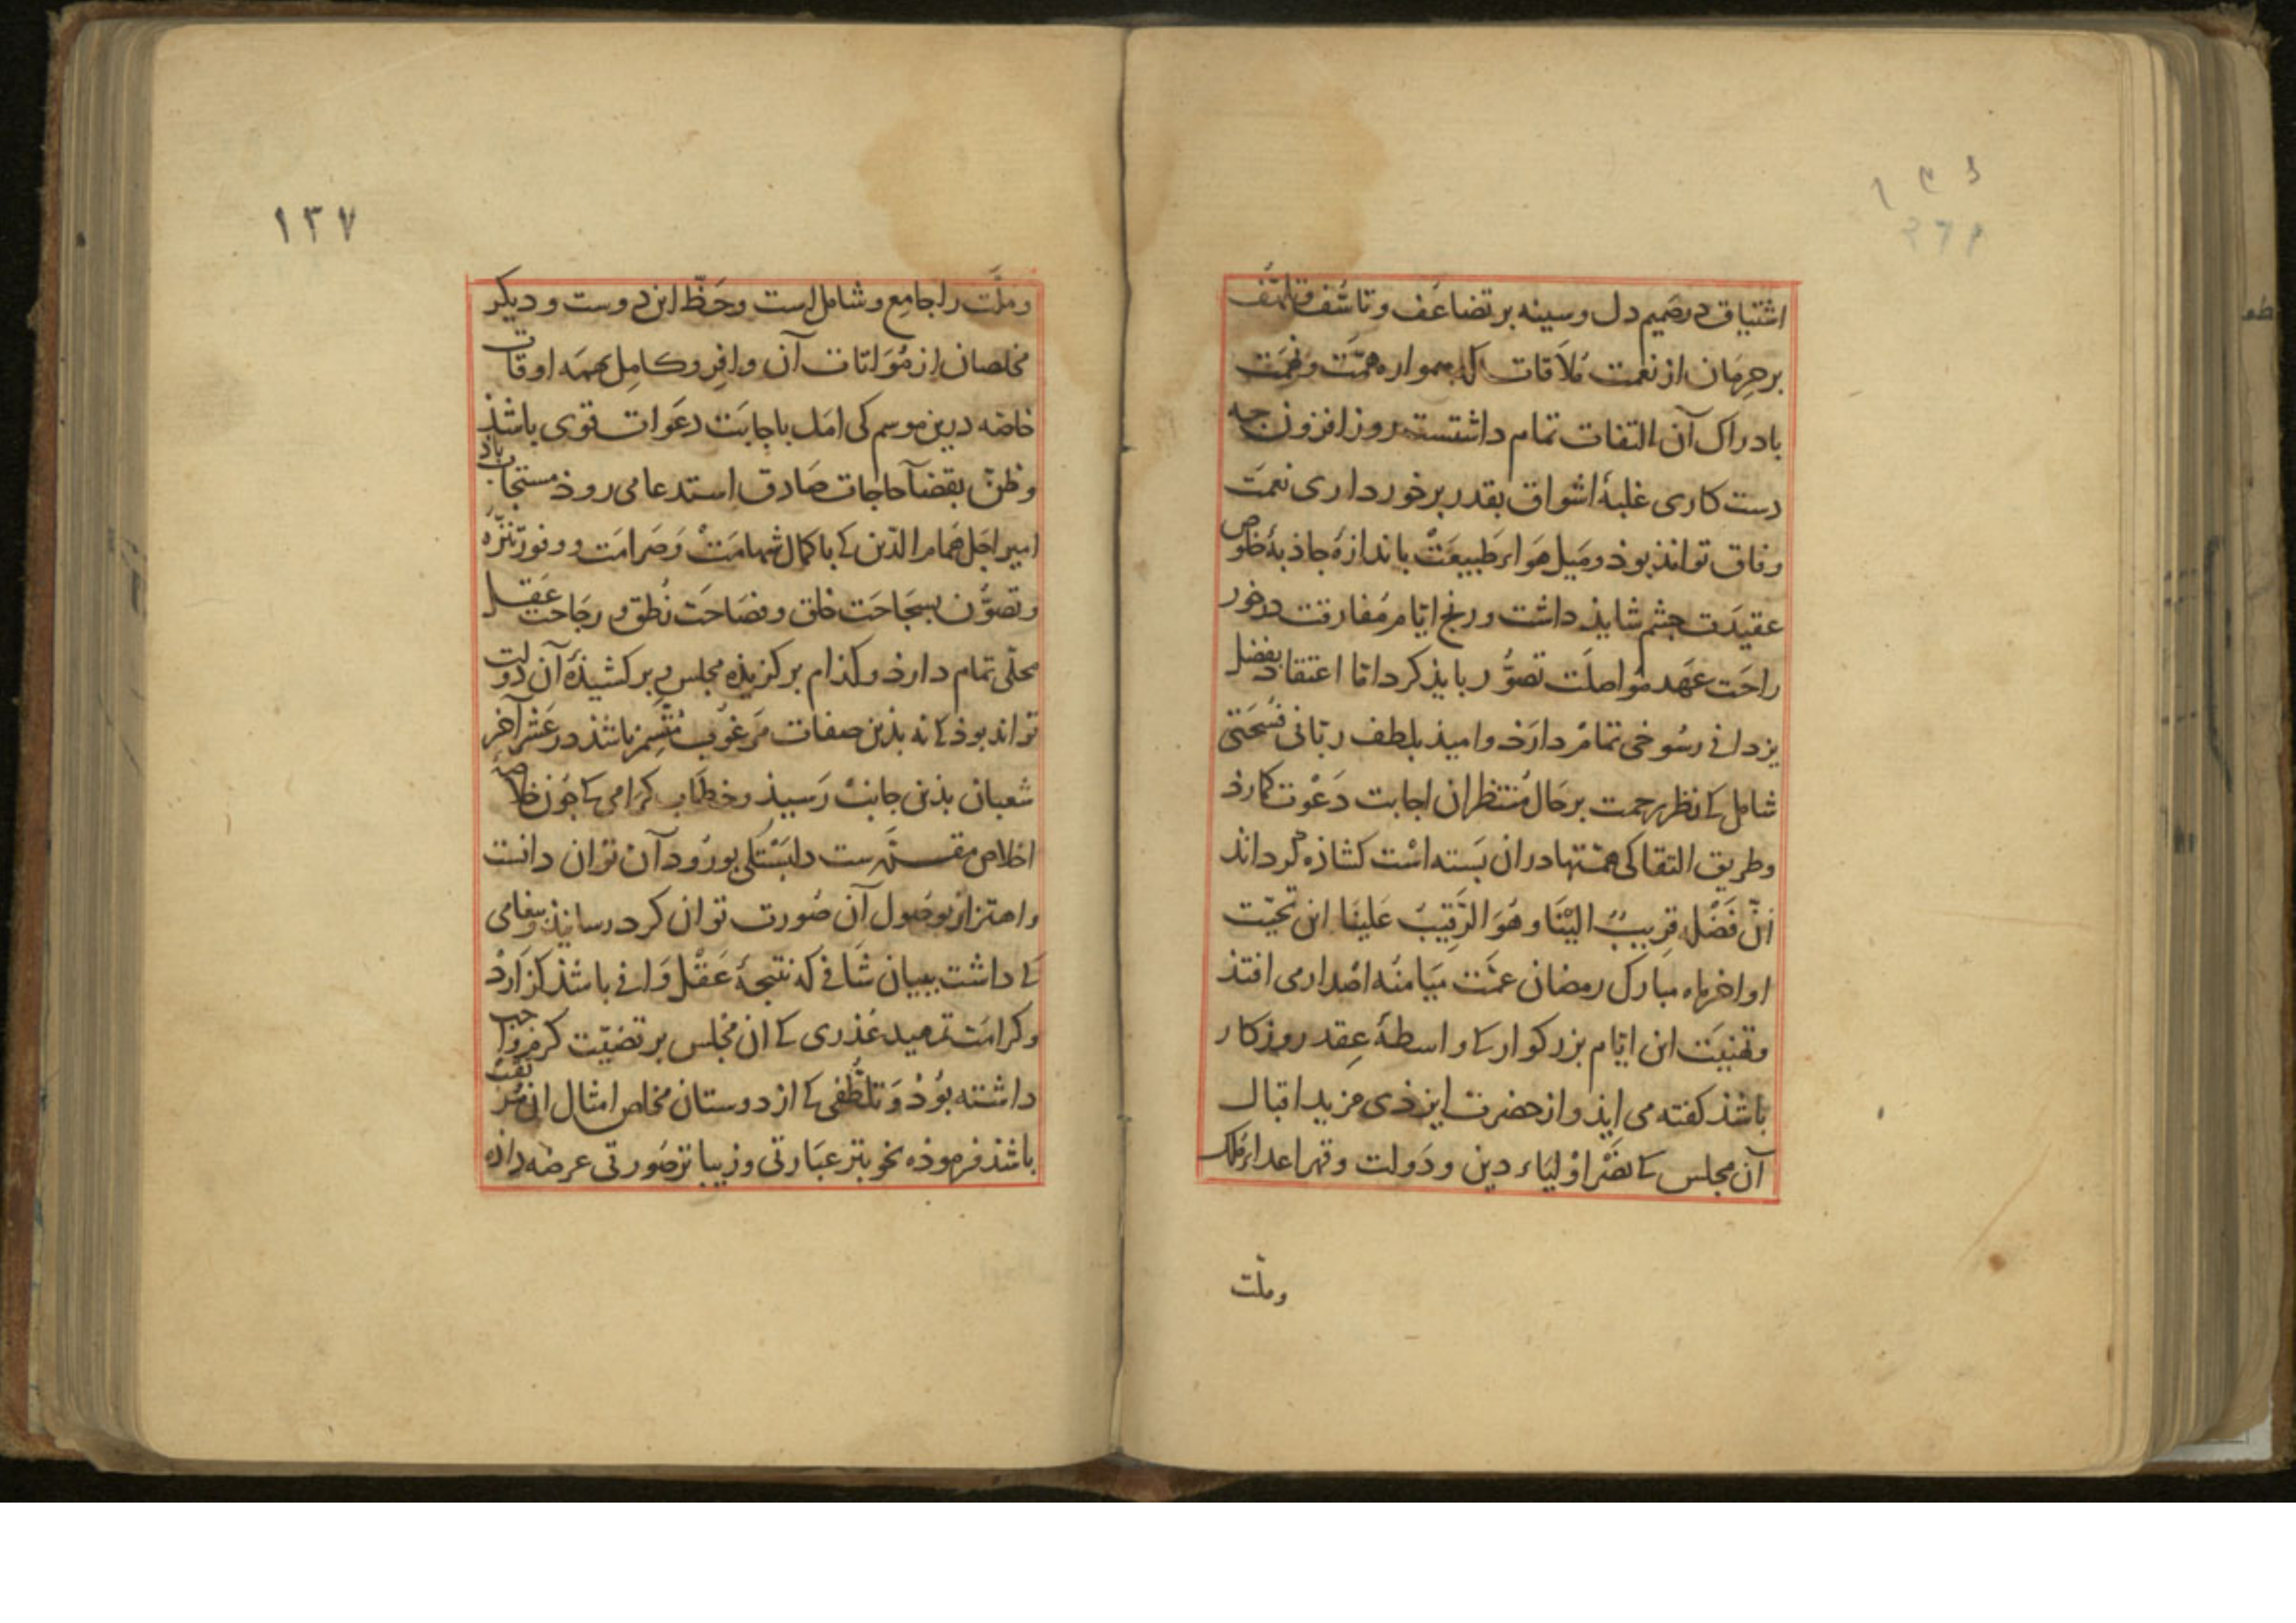 اشتیاق در صمیم دل و سینه بر تضاعف و تاسّف و تلهّف
بر حرمان از نعمت ملاقات که همواره همّت و نهمت
بادراک آن التفات تمام داشتست روز افزون چه
دست کاری غلبهٔ اشواق بقدر برخورداری نعمت
وفاق تواند بوذ و میل هواء طبیعت باندازهٔ جاذبهٔ خلوص
عقیدت چشم شایذ داشت و رنج ایّام مفارقت در خور
راحت عهد مواصلت تصوّر بایذ کرد امّا اعتقاد بفضل
یزدانی رسوخی تمام دارذ و امیذ بلطف ربّانی فسحتی
شامل کی نظر رحمت بر حال منتظران اجابت دعوت کمارد
و طریق التقا کی همّتها در ان بسته است کشاذه کرداند
انّ فضله قریبٌ الینا و هو الرّقیب علینا این تحیّت
اواخر ماه مبارک رمضان عمّت میامنه اصدار می افتذ
و تهنیت این ایّام بزرکوار کی واسطهٔ عقد روزکار
باشذ کفته می ایذ و از حضرت ایزذی مزید اقبال
آن مجلس کی نصر اولیاء دین و دولت و قهر اعداء ملک
وملّت
۱۳۷
و ملّت را جامع و شامل است و حظّ این دوست و دیکر
مخلصان از مؤاتات آن وافر و کامل بهمه اوقات
خاصّه درین موسم کی امل باجابت دعوات قوی باشذ
و ظنّ بقضآ حاجات صادق استدعا می روذ مستجاب باذ
امیر اجل همام الدّین کی با کمال شهامت و صرامت و وفور تنزّه
و تصوّن بسجاحت خلق و فصاحت نطق و رجاحت عقل
محلّی تمام دارذ و کذام برکزیذه مجلس و برکشیذهٔ آن دولت
تواند بوذ کی نه بذین صفات مرغوب متّسم باشذ در عشر آخر
شعبان بذین جانب رسیذ و خطاب کرامی کی چون خلاصه
اخلاص مقـ ـست دلبستکی بورود آن توان دانست
و اهتزاز بوصول آن صورت توان کرد رسانیذ و پیغامی
کی داشت ببیان شافی که نتیجهٔ عقل وافی باشذ کزارد
و کرامت تمهید عذری کی ان مجلس بر تضیّت کرم واجب
داشته بوذ و تلطّفی کی از دوستان مخلص امثال ان
باشذ فرموذه بخوبتر عبارتی و زیباتر صورتی عرضه داذه